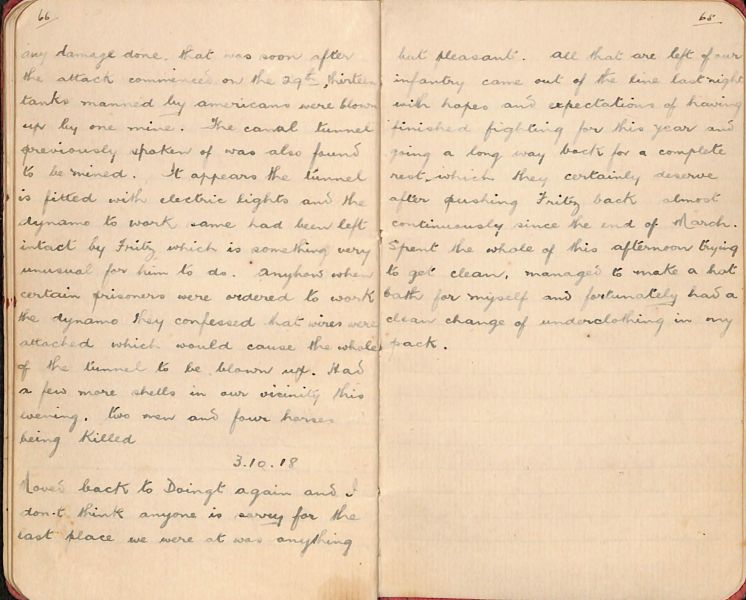 66
any damage done, that was soon after
the attack commenced on the 29th, thirteen
tanks manned by americans were blown
up by one mine. The canal tunnel
previously spoken of was also found
to be mined. It appears the tunnel
is fitted with electric lights and the
dynamo to work same had been left
intact by Fritz which is something very
unusual for him to do. anyhow when
certain prisoners were ordered to work
the dynamo they confessed that wires were
attached which would cause the whole
of the tunnel to be blown up. Had
a few more shells in our vicinity this
evening, two men and four horses
being killed
3.10.18
Moved back to Doingt again and I
don't think anyone is sorry for the
last place we were at was anything
68
but pleasant. All that are left of our
infantry came out of the line last night
with hopes and expectations of having
finished fighting for this year and
going a long way back for a complete
rest, which they certainly deserve
after pushing Fritz back almost
continuously since the end of March.
Spent the whole of this afternoon trying
to get clean, managed to make a hot
bath for myself and fortunately had a
clean change of underclothing in my
pack.